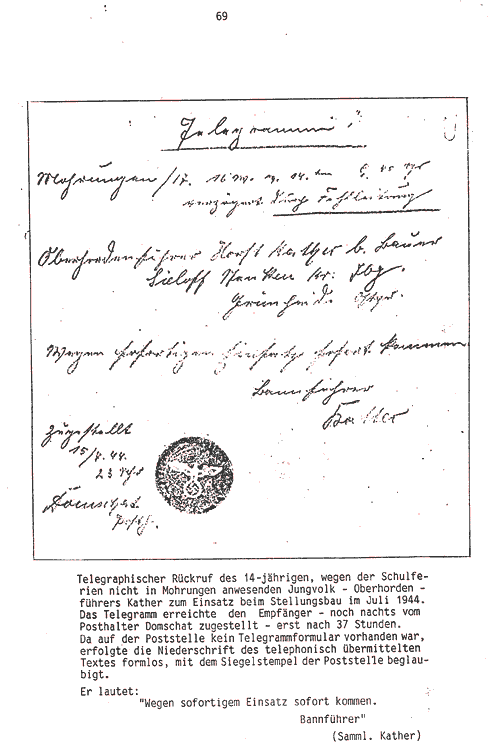 69
Telegramm!
Mohrungen /17. 16 W. m. 14. 8 45 Uhr
verzögert durch Fehlleitung
Oberhordenführer Horst Kather b. Bauer
Sieloff
Grünheide Ostpr.
Wegen sofortigem Einsatz sofort kommen
Bannführer
Kather
Zugestellt
15/7. 44.
23 Uhr
Domschat
Posth.
Telegraphischer Rückruf des 14-jährigen, wegen der Schulfe-
rien nicht in Mohrungen anwesenden Jungvolk - Oberhorden -
führers Kather zum Einsatz beim Stellungsbau im Juli 1944.
Das Telegramm erreichte den Empfänger - noch nachts vom
Posthalter Domschat zugestellt - erst nach 37 Stunden.
Da auf der Poststelle kein Telegrammformular vorhanden war,
erfolgte die Niederschrift des telephonisch übermittelten
Textes formlos, mit dem Siegelstempel der Poststelle beglau-
bigt.
Er lautet:
"Wegen sofortigem Einsatz sofort kommen.
Bannführer"
(Samml. Kather)